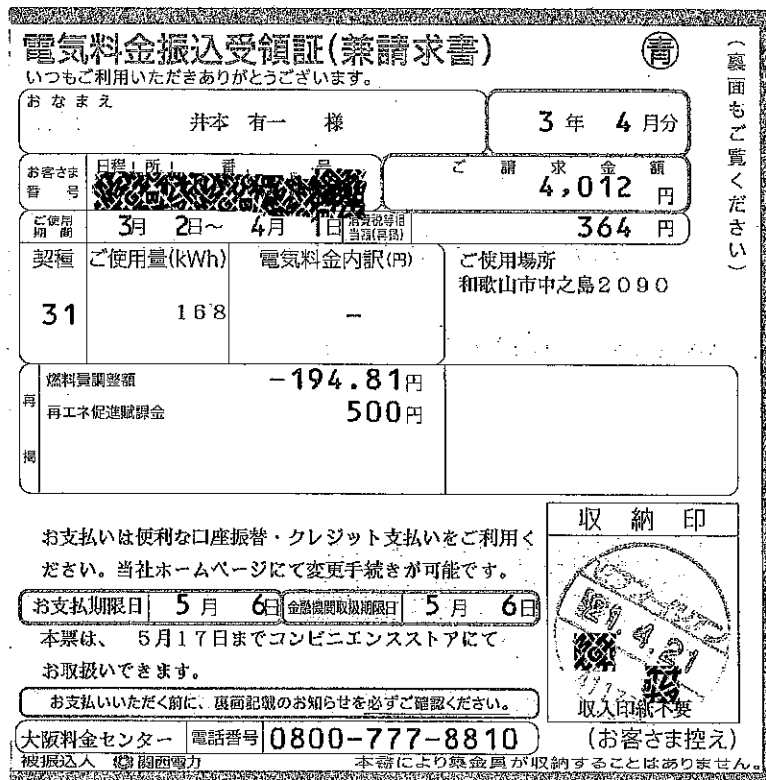 電気料金振込受領証(兼請求書)
青
(裏面もご覧ください)
いつもご利用いただきありがとうございます。
おなまえ
井本 有一 様
3年 4月分
お客さま番号
日程 所 番 号
ご請求金額
4,012円
ご使用期間
3月 2日~ 4月 1日
消費税等相当額(再掲)
364円
契種 ご使用量(kWh) 電気料金内訳(円)
31 168 −
ご使用場所
和歌山市中之島2090
再掲
燃料費調整額 -194.81円
再エネ促進賦課金 500円
お支払いは便利な口座振替・クレジット支払いをご利用く
ださい。当社ホームページにて変更手続きが可能です。
お支払期限日 5月 6日 金融機関取扱期限日 5月 6日
本票は、 5月17日までコンビニエンスストアにて
お取扱いできます。
お支払いいただく前に、裏面記載のお知らせを必ずご確認ください。
収納印
21.4.21
収入印紙不要
大阪料金センター 電話番号 0800-777-8810
(お客さま控え)
被振込人 関西電力
本書により集金員が収納することはありません。